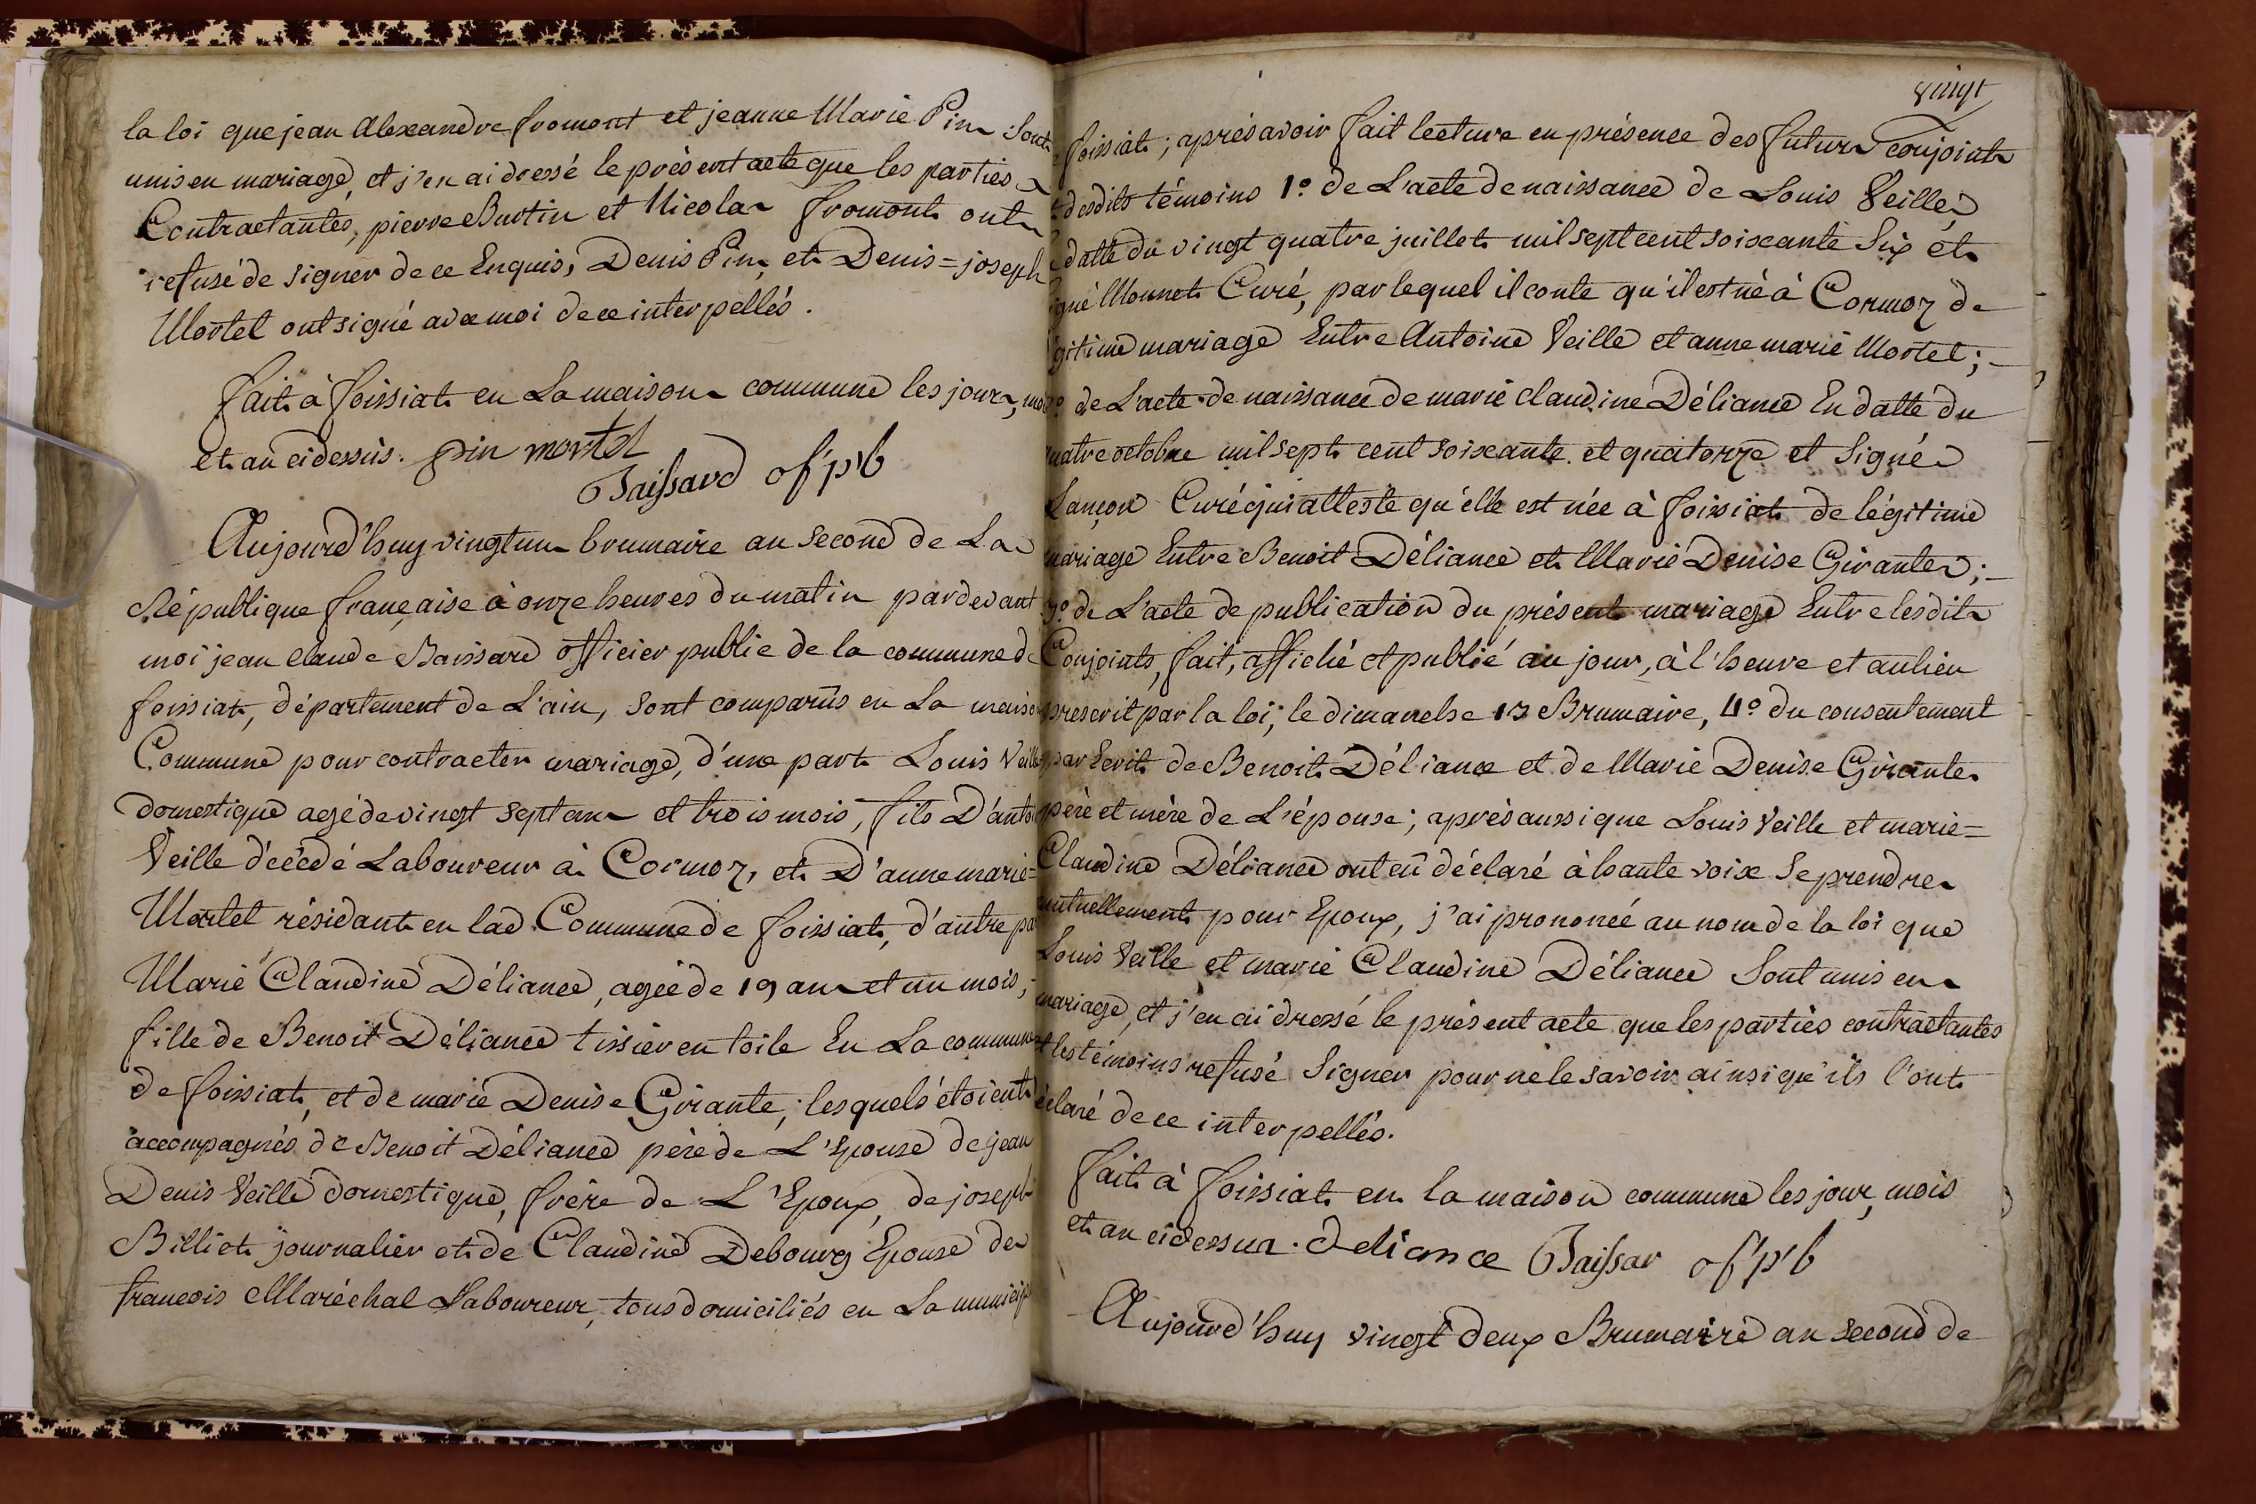 la loi que jean Alexandre fromont et jeanne Marie Pin Sont
unis en mariage, et j'en ai dressé le présent acte que les parties
Contractantes, pierre Burtin et Nicolas fromont ont
refusé de signer de ce Enquis, Denis Pin, et Denis=joseph
Mortel ont signé avec moi de ce interpellés.
fait à foissiat en La maison commune les jour, mois
et an cidessus. pin mortel
Baissard of p'b
Aujourd'huy vingt un brumaire an second de La
République française à onze heures du matin pardevant
moi jean claude Baissard officier public de la commune de
foissiat, département de L'ain, sont comparûs en La maison
Commune pour contracter mariage, d'une part Louis Veille
domestique agé de vingt sept ans et trois mois, fils D'antoine
Veille décédé Laboureur à Cormoz, et D'anne marie=
Mortel résidant en lad. Commune de foissiat, d'autre part
Marie Claudine Déliance, agée de 19 ans et un mois,
fille de Benoit Déliance tissier en toile En La commune
de foissiat, et de marie Denise Girante; lesquels étoient
accompagnés de Benoit Déliance père de L'Epouse de jean
Denis Veille domestique, frère de L'Epoux, de joseph
Billiet journalier et de Claudine Debourg Epouse de
francois Maréchal Laboureur, tous domiciliés en La municip
vingt
foissiat; après avoir fait lecture en présence des futurs conjoints
desdits témoins 1.º de L'acte de naissance de Louis Veille,
datte du vingt quatre juillet mil sept cent soixante Six et
signé Monnet Curé, par lequel il conte qu'il est né à Cormoz de
légitime mariage Entre Antoine Veille et anne marie Mortel;
2º de L'acte de naissance de marie claudine Déliance En datte du
quatre octobre mil sept cent soixante et quatorze et Signé
Lançon Curé qui atteste qu'elle est née à foissiat de légitime
mariage Entre Benoit Déliance et Marie Denise Girante;
3º de L'acte de publication du présent mariage Entre lesdits
Conjoints, fait, affiché et publié au jour, à l'heure et au lieu
prescrit par la loi, le dimanche 13 Brumaire, 4º du consentement
par Ecrit de Benoit Déliance et de Marie Denise Girante
père et mère de L'épouse; après aussi que Louis Veille et marie=
Claudine Déliance ont eû déclaré à haute voix Se prendre
mutuellement pour Epoux, j'ai prononcé au nom de la loi que
Louis Veille et marie Claudine Déliance Sont unis en
mariage, et j'en ai dressé le présent acte que les parties contractantes
et les témoins refusé Signer pour ne le savoir ainsi qu'ils l'ont
déclaré de ce interpellés.
fait à foissiat en la maison commune les jour, mois
et an cidessus. deliance Baissar of p'b
Aujourd'huy vingt deux Brumaire an second de